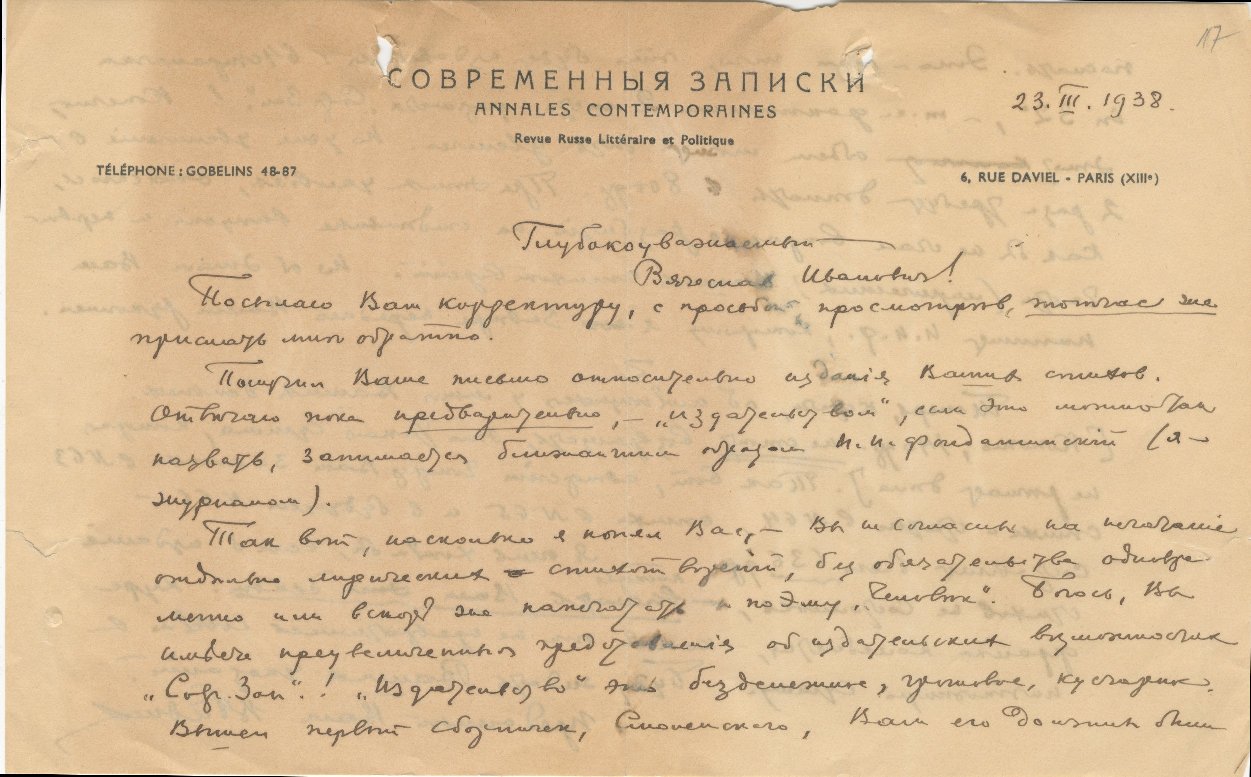 17
СОВРЕМЕННЫЯ ЗАПИСКИ
ANNALES CONTEMPORAINES
23.III.1938.
Revue Russe Littéraire et Politique
TÉLÉPHONE : GOBELINS 48-87
6, RUE DAVIEL - PARIS (XIIIe)
Глубокоуважаемый
Вячеслав Иванович!
Посылаю Вам корректуру, с просьбой, просмотрев, тотчас же
прислать мне обратно.
Получил Ваше письмо относительно изданiя Ваших стихов.
Отвечаю пока предварительно, – „издательством“, если это можно так
назвать, занимается ближайшим образом И. И. Фондаминский (я –
журналом).
Так вот, насколько я понял Вас, – Вы не согласны на печатанiе
отдельно лирических стихотворенiй, без обязательства одновре
менно или вскоре же напечатать и поэму „Человек“. Боюсь, Вы
имеете преувеличенныя представленiя об издательских возможностях
„Совр. Зап.“! „Издательство“ это безденежное, грошовое, кустарное.
Вышел первый сборничек, Смоленскаго, Вам его должны были